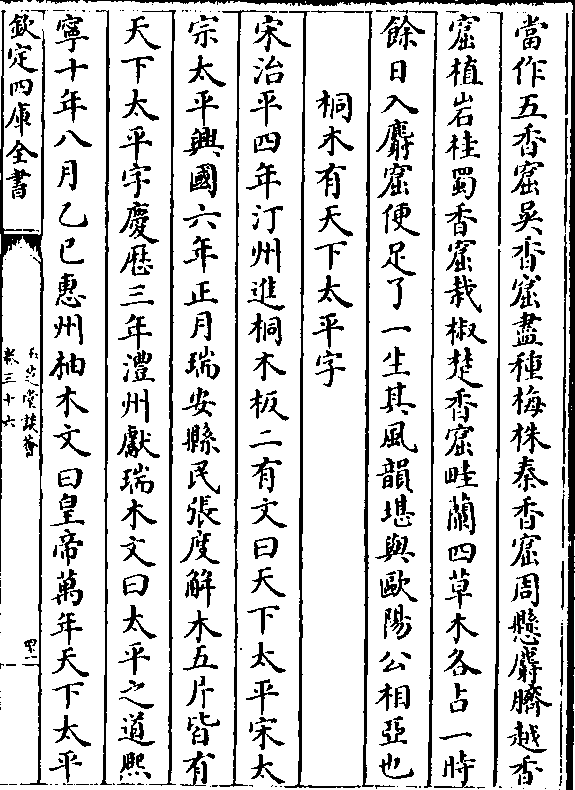 當作五香窟吳香窟盡種梅株秦香窟周懸麝臍越香
窟植岩桂蜀香窟栽椒楚香窟畦蘭四草木各占一時
餘日入麝窟便足了一生其風韻堪與歐陽公相亞也
桐木有天下太平字
宋治平四年汀州進桐木板二有文曰天下太平宋太
宗太平興國六年正月瑞安縣民張度解木五片皆有
天下太平字慶厯三年澧州獻瑞木文曰太平之道熙
寧十年八月乙巳惠州柚木文曰皇帝萬年天下太平
欽定四庫全書
卷三十六